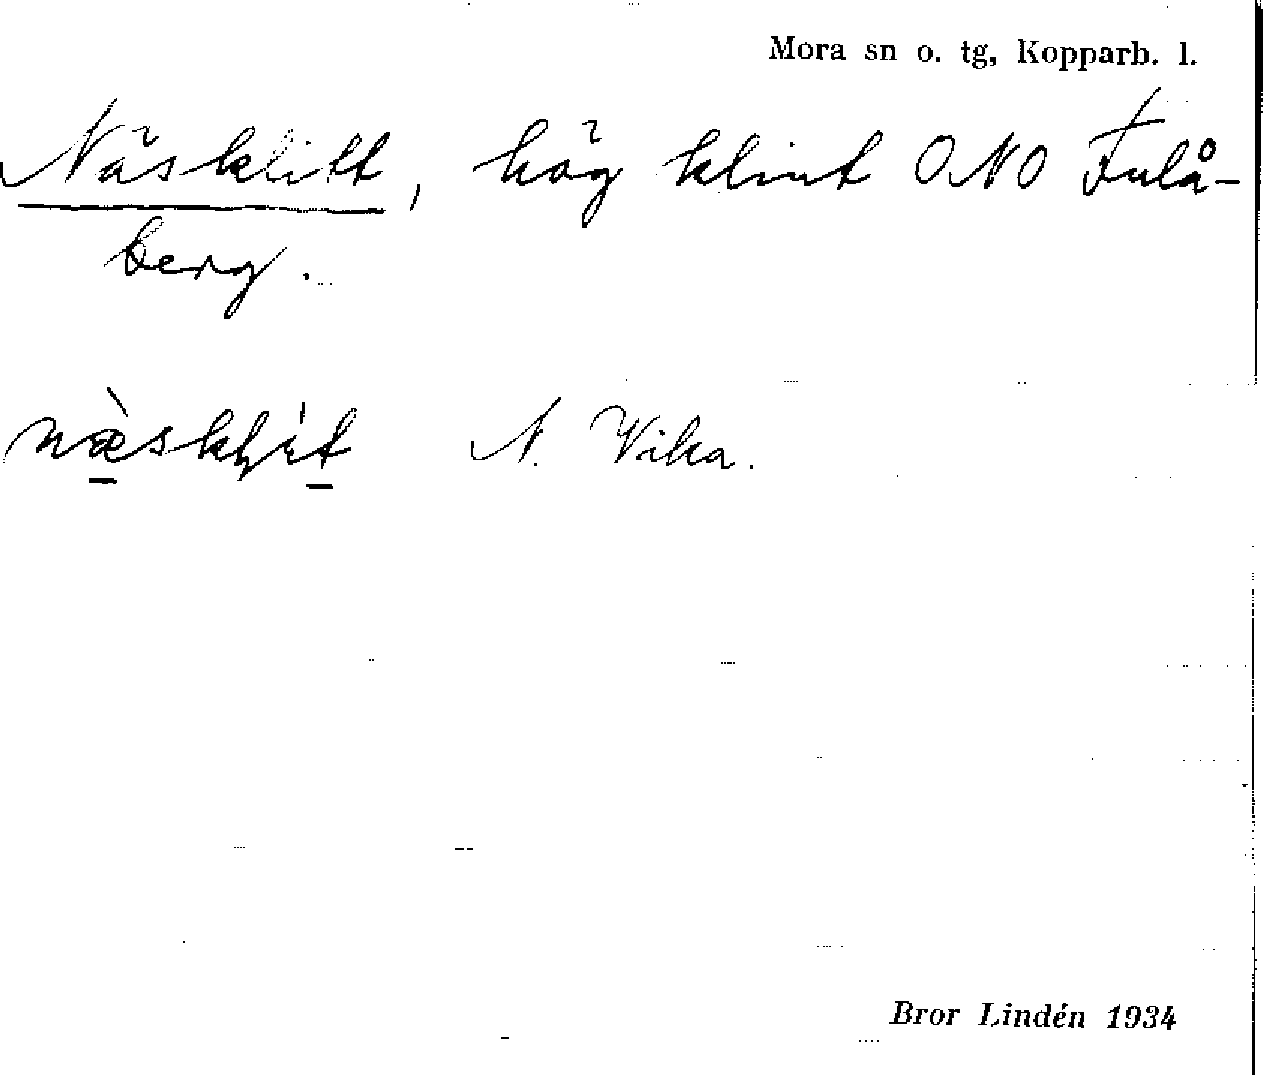 Mora sn o. tg, Kopparb. l.
Näsklitt, hög klint ONO Fulå-
berg.
næ̀skḷìt N. Vika.
Bror Lindén 1934